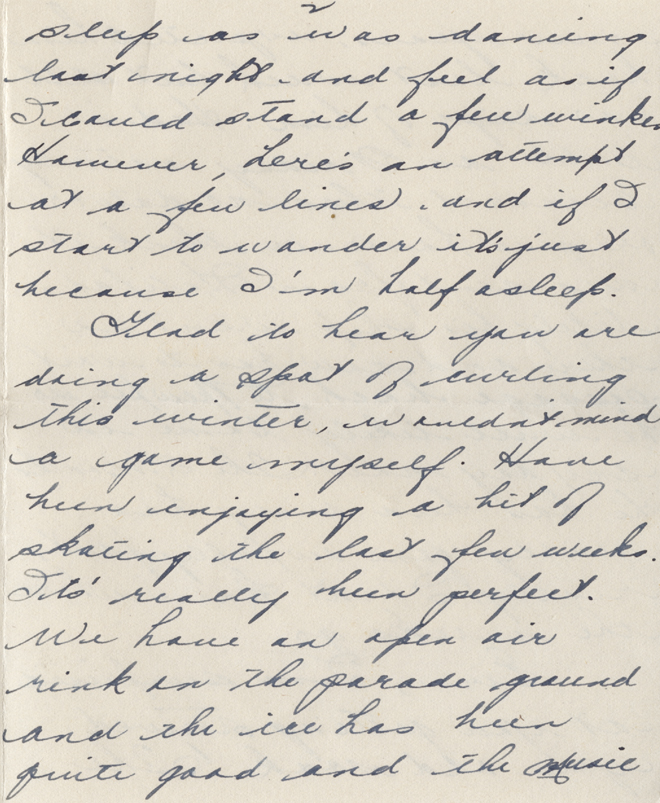 2
sleep as was dancing
last night and feel as if
I could stand a few winks
However, here's an attempt
at a few lines, and if I
start to wander it's just
because I'm half asleep.
Glad to hear you are
doing a spot of curling
this winter, wouldn't mind
a game myself. Have
been enjoying a bit of
skating the last few weeks.
Its' really been perfect.
We have an open air
rink on the parade ground
and the ice has been
quite good and the music